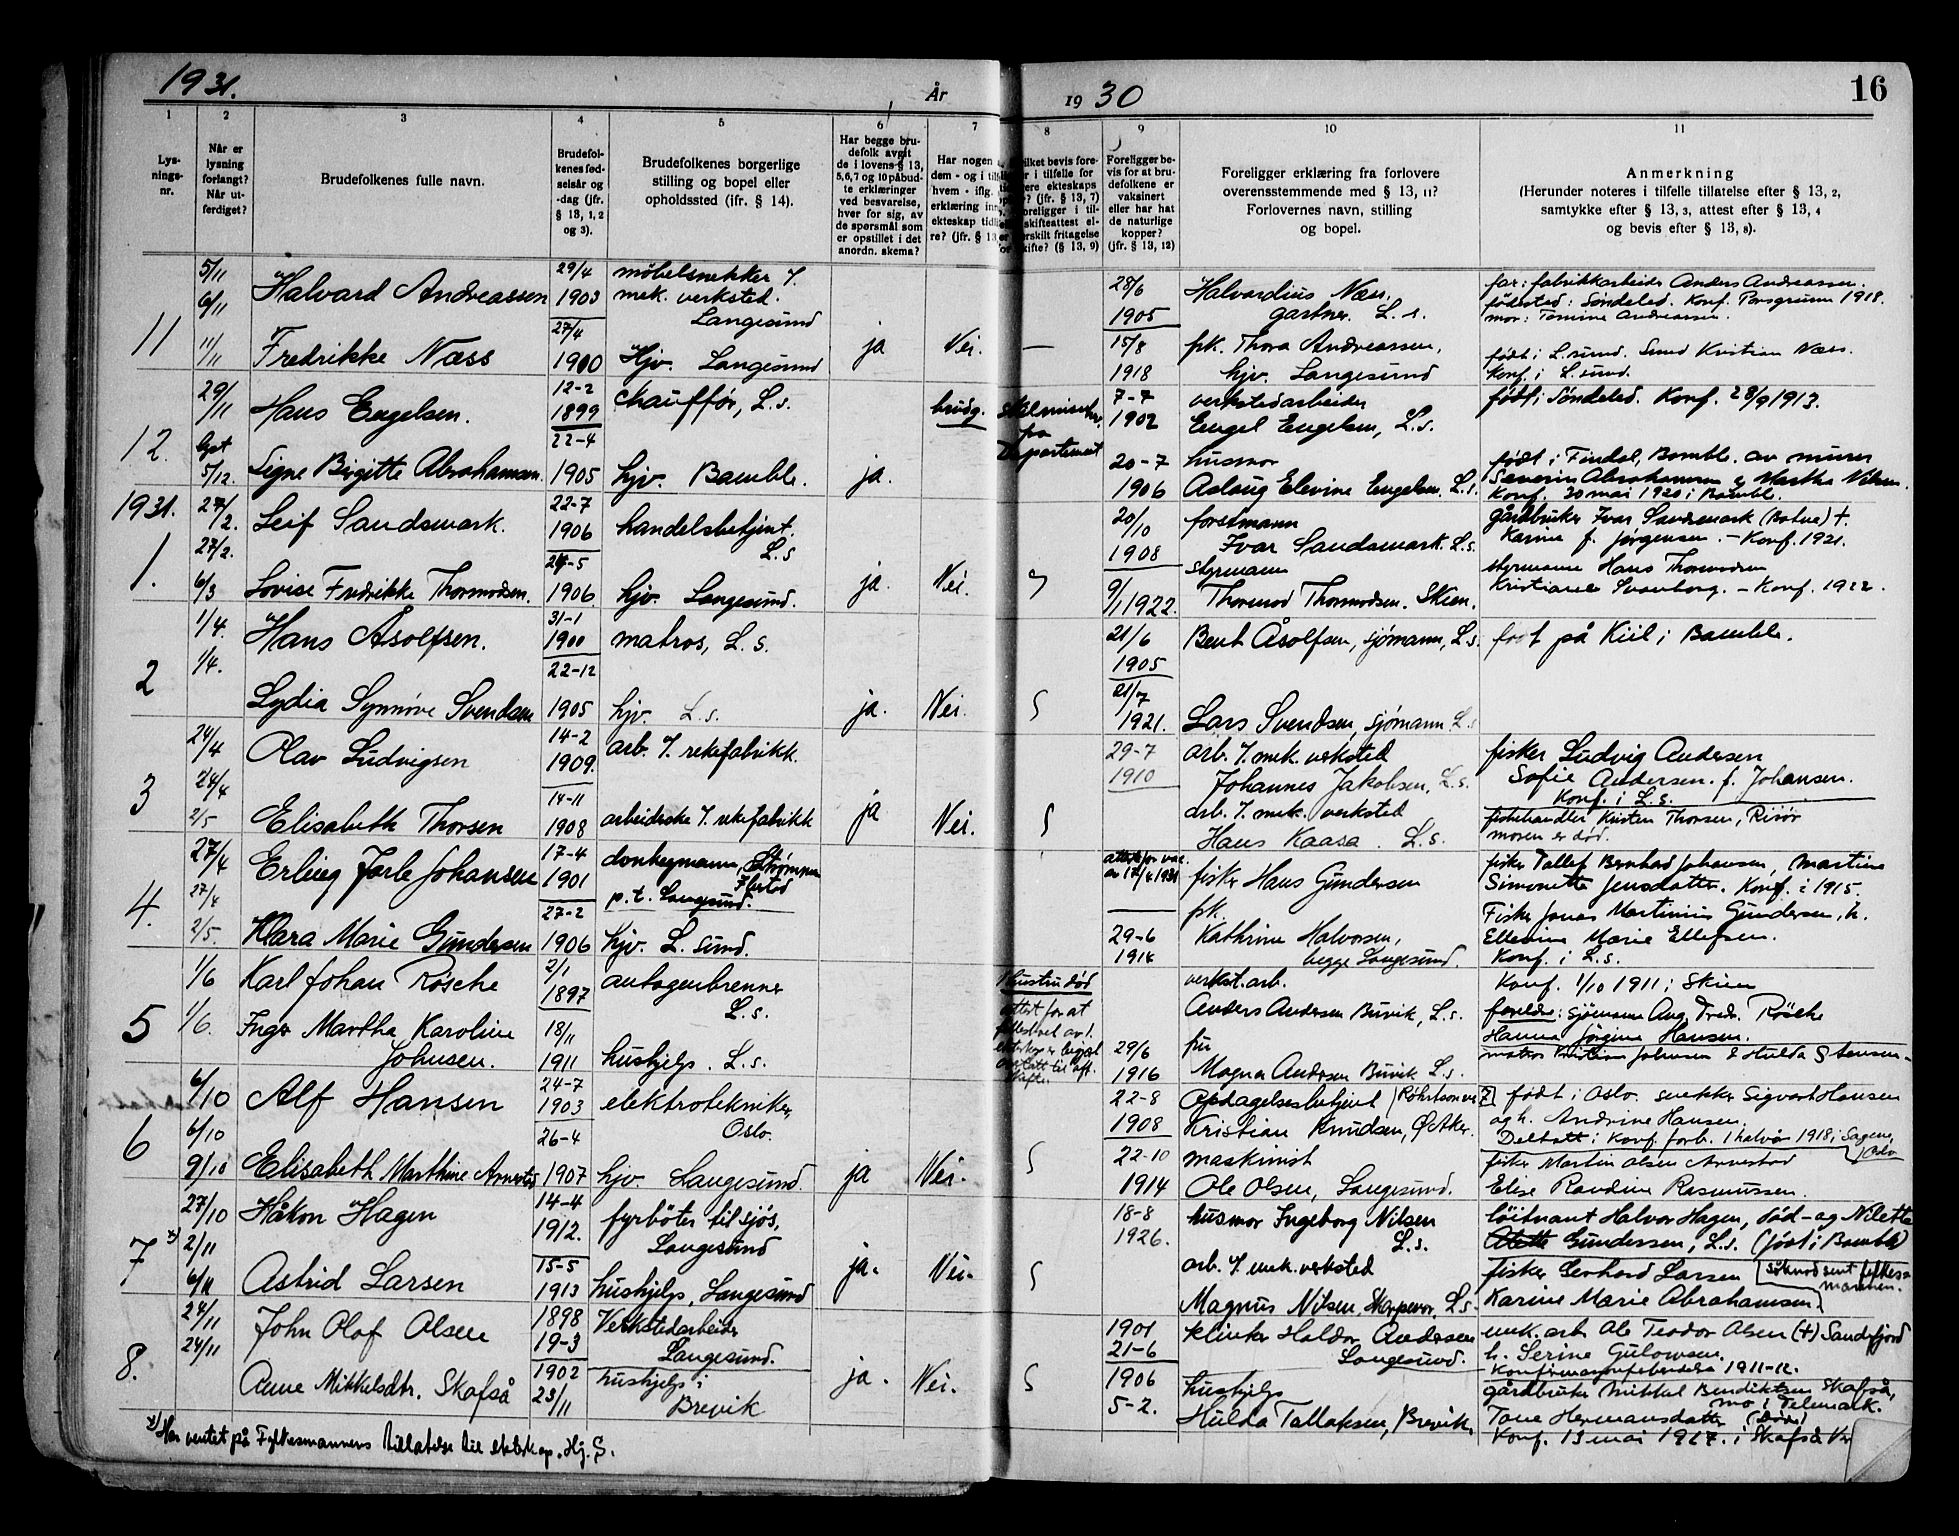 1931. År 1930 16
1 2 3 4 5 6 7 8 9 10 11
Lys-
nings-
nr.
Når er
lysning
forlangt?
Når ut-
ferdiget?
Brudefolkenes fulle navn.
Brudefol-
kenes fød-
selsår og
-dag (jfr.
§ 13, 1, 2
og 3).
Brudefolkenes borgerlige
stilling og bopel eller
opholdssted (ifr. § 14).
Har begge bru-
defolk avgit
de i lovens § 13,
5,6,7 og 10 påbud-
te erklæringer
ved besvarelse,
hver for sig, av
de spørsmål som
er opstillet i det
anordn. skema?
Har nogen
dem - og i
hvem - iflg.
erklæring
ekteskap
re? (jfr. § 13
Foreligger be-
vis for at bru-
defolkene er
vaksinert
eller har hat
de naturlige
kopper?
(jfr. § 13, 12)
Foreligger erklæring fra forlovere
overensstemmende med § 13, 11?
Forlovernes navn, stilling
og bopel.
Anmerkning
(Herunder noteres i tilfelle tillatelse efter § 13, 2,
samtykke efter § 13, 3, attest efter § 13, 4
og bevis efter § 13, 8).
11
5/11
6/11
Halvard Andreassen
29/4
1903
møbelsnekker v.
mek. verksted.
Langesund
28/6
1905
Halvardius Næss
gartner. L. s.
far: fabrikkarbeider Anders Andreassen.
fødested: Søndeled. Konf. Porsgrunn 1918.
mor: Tomine Andreassen.
11/11
Fredrikke Næss
27/4
1900
Hjv. Langesund
ja
Nei.
—
15/8
1918
frk. Thora Andreassen,
hjv. Langesund
født i L.sund. Smed Kristian Næss.
Konf. i L.sund.
12.
29/11
Hans Engelsen.
12-2
1899
Chauffør, L.s.
brudg.
fra
Departement
7-7
1902
verkstedarbeider
Engel Engelsen, L.s.
født i Søndeled. Konf. 28/9 1913.
5/12.
Signe Birgitte Abrahamsen
22-4
1905
hjv. Bamble.
ja.
20-7
1906
husmor
Aslaug Elevine Engelsen L.s.
født i Findal, Bamble. av murer
Severin Abrahamsen og Martha Nilsen.
Konf. 30 mai 1920 i Bamble.
1931.
1.
27/2.
27/2.
Leif Sandsmark.
22-7
1906
handelsbetjent.
L.s
20/10
1908
forstmann
Ivar Sandsmark. L.s.
gårdbruker Ivar Sandsmark (Botne) +.
Karine f. Jørgensen. - Konf. 1921.
6/3
Lovise Fredrikke Thormodsen.
24-5
1906
hjv. Langesund.
ja.
Nei.
9/1 1922.
styrmann
Thormod Thormodsen. Skien.
styrmann Hans Thormodsen
Kristiane Svanborg. - Konf. 1922.
2
1/4.
1/4.
Hans Åsolfsen.
31-1
1900
matros, L. s.
21/6
1905
Bent Åsolfsen, sjømann, L.s.
født på Kiil i Bamble.
Lydia Synnøve Svendsen
22-12
1905
hjv. L.s.
ja.
Nei.
21/7
1921.
Lars Svendsen, sjømann L.s
3
24/4
24/4
Olav Ludvigsen
14-2
1909.
arb. v. rekefabrikk.
29-7
1910
arb. v. mek. verksted
Johannes Jakobsen, L.s.
fisker Ludvig Andersen
Sofie Andersen. f. Johansen.
Konf. i L.s.
2/5
Elisabeth Thorsen
14-11
1908
arbeiderske v. rekefabrikk
ja
Nei.
arb. v. mek. verksted
Hans Kaasa. L.s.
fiskehandler Kristen Thorsen, Risør
moren er død.
4.
27/4
27/4
Erling Jarle Johansen
17-4
1901
donkeymann, Strømmen
p.t. Langesund.
attest for vac.
av 17/4 1931
fisker Hans Gundersen
fisker Tallef Bernhard Johansen, Martine
Simonette Jensdatter. Konf. i 1915.
2/5.
Klara Marie Gundersen
27-2
1906
hjv. L. sund.
29-6
1914
frk.
Kathrine Halvorsen,
begge Langesund.
Fisker Jonas Martinius Gundersen, h.
Ellevine Marie Ellefsen.
Konf. i L.s.
5
1/6
Karl Johan Røsche
2/1
1897
autogenbrenner
L.s.
1 hustru død
attest for at
verkst.arb.
Anders Andersen Buvik, L.s.
Konf. 1/10 1911 i Skien
foreldre: sjømann Aug. Fred. Røsche
Hanna Jørgine Hansen.
1/6.
Inger Martha Karoline
Johnsen.
18/11
1911
hushjelp. L.s.
29/6
1916
fru
Magna Andersen Buvik L.s.
matros Kristian Johnsen & Hulda Stensen
6
6/10
6/10
Alf Hansen
24-7
1903
elektrotekniker,
Oslo.
22-8
1908
Opdagelsesbetjent
Kristian Knudsen, Ø. Aker.
født i Oslo. snekker Sigvart Hansen
og h. Andrine Hansen
Deltatt i Konf. forb. 1 halvår 1918 i Sagene,
Oslo
9/10
Elisabeth Marthine Arnestad
26-4
1907
hjv. Langesund.
ja
Nei.
22-10
1914
maskinist
Ole Olsen, Langesund.
fisker Martin Olsen Arnestad
Elise Randine Rasmussen.
7 x)
27/10
2/11
Håkon Hagen
14-4
1912.
fyrbøter til sjøs,
Langesund
18-8
1926.
husmor Ingeborg Nilsen
L.s.
løitnant Halvor Hagen, død - og Nilette
Gundersen, L.s. (født i Bamble)
6/11
Astrid Larsen
15-5
1913
hushjelp, Langesund
ja.
Nei.
arb. v. mek. verksted
Magnus Nilsen, L.s.
fisker Gerhard Larsen
Karine Marie Abrahamsen
søknad sent fylkes-
mannen.
8.
24/11
24/11
John Olaf Olsen
1898
19-3
Verkstedarbeider
Langesund.
1901
21-6
klinker Haldor Andersen
Langesund.
mek. arb. Ole Teodor Olsen (+) Sandefjord
h. Serine Gulowsen.
1911-12.
Anne Mikkelsdtr. Skafså
1902
23/11
hushjelp i
Brevik
ja.
Nei.
1906
5-2.
hushjelp
Hulda Tallaksen, Brevik
gårdbruker Mikkel Bendiktsen Skafså,
Mo i Telemark.
Tone Hermansdatter (døde)
Konf. 13 mai 1917. i Skafså
x) Har ventet på Fylkesmannens tillatelse til ekteskap. Hj. S.